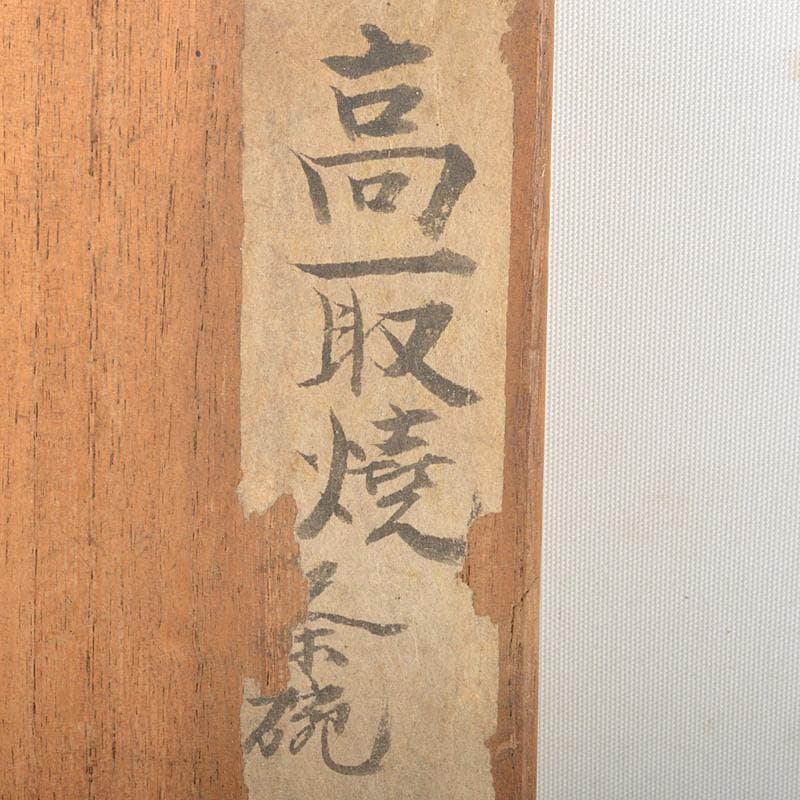 高取燒茶碗